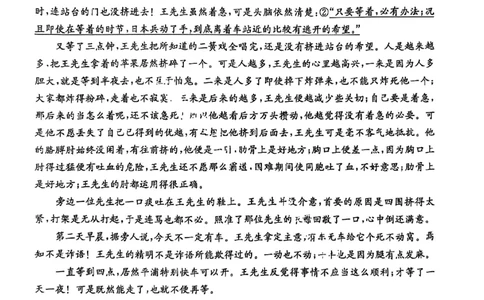 时,连站台的门也没挤进去!王先生虽然着急,可是头脑依然清楚:②“只要等着,必有办法;况
且即使在等着的时节,日本兵动了手,到底离着车站近的比较有逃开的希望。”
又等了三点钟,王先生把所知道的二簧戏全唱完,还是没有挤进站台的希望。人是越来越
多,把王先生拿着的苹果居然挤碎了一个。可是人越多,王先生的心里越高兴,一来是因为人多
胆大,就是等到半夜去,也不至于怕鬼。二来是人多了即使掉下炸弹来,也不能只炸死他一个;
大家都炸得粉碎,走着也不寂寞。三来是后来的越多,王先生便越减少些关切;自己要是着急,
那后来的当怎么着呢,还不该急死!所以他越看后方万头攒动,他越觉得没有着急的必要。可
是他不愿丢失了自己已得到的优越,有人想把他挤到后面去,王先生可是毫不客气地抵抗。他
的胳膊肘始终没闲着,有往前挤的,他便是一肘,肋骨上是好地方;胸口上便差一点,因为胸口上
肘得过猛便有吐血的危险,王先生还不愿那么霸道,国难期间使同胞吐了血,不好意思;肋骨上
是好地方;王先生的肘都运用得很正确。
旁边一位先生把一口痰吐在王先生的鞋上。王先生并没介意,首要的原因是四围挤得太
紧,打架是无从打起,于是连骂也都不必。照准了那位先生的长衫回敬了一口,心中倒还满意。
第二天早晨,据旁人说,今天不一定有车。王先生拿定主意,有车无车给它个死不动窝。焉
知不是诈语!王先生的精明不是诈语所能欺得过的。一动也不动;一半也是因为腿有点发麻。
一直等到四点,居然平浦特别快车可以开。王先生反觉得事情不应当这么顺利;才等了一
天一夜!可是既然能走了,也就不便再等。